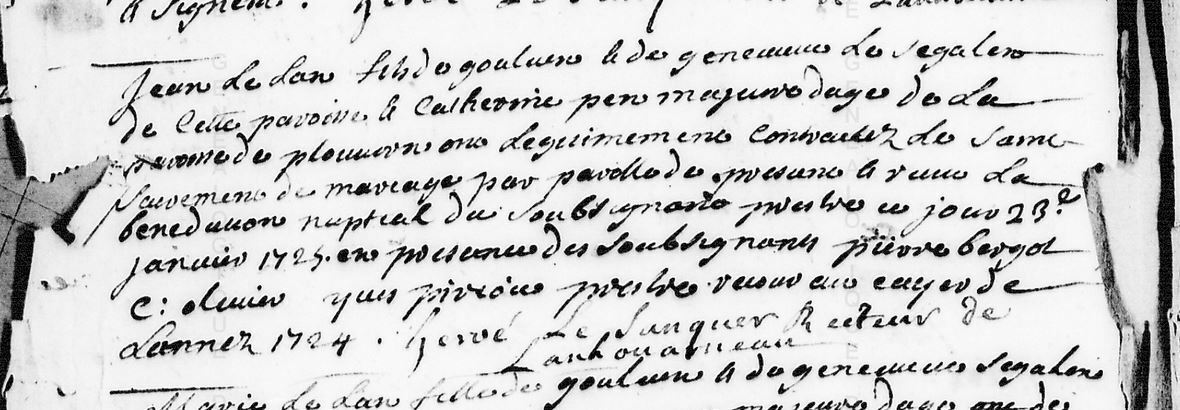 Jean Le Lan fils de goulven & de genevieve Le segalen
de Cette paroisse & Catherine pen majeure dage de La
paroisse de plouvorn ont Legitimement Contractez Le Saint
Sacrement de mariage par parolle de present & receu La
benediction nuptial du Soubsignant prestre ce jour 23e
janvier 1725 en presence des Soubsignants pierre bergot
C: olivier yves prestre recours au cayer de
Lannez 1724 . hervé Le Sanquer Recteur de
Lanhouarneau
Marie Le Lan fille de goulven & de genevieve segalen
majeure dage